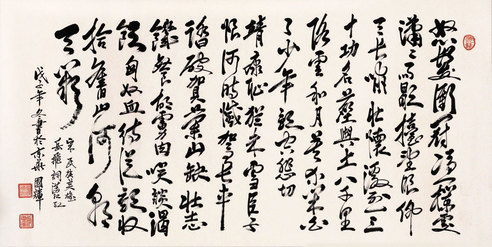 怒髮衝冠憑欄處
瀟瀟雨歇擡望眼仰
天長嘯壯懷激烈三
十功名塵與土八千里
路雲和月莫等閑白
了少年頭空悲切
靖康恥猶未雪臣子
恨何時滅駕長車
踏破賀蘭山缺壯志
飢餐胡虜肉笑談渴
飲匈奴血待從頭收
拾舊山河朝
天闕
宋民族英雄
岳飛詞滿江紅
年冬書於